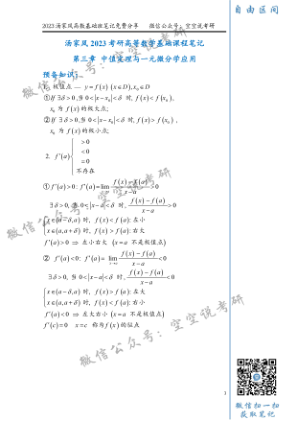 2023汤家凤高数基础班笔记免费分享 微信公众号：空空说考研
自由区间
汤家凤2023考研高等数学基础课程笔记
第三章 中值定理与一元微分学应用
预备知识：
1. 极值点 — y=f(x) (x∈D), x₀∈D
①If ∃δ>0, 当0<|x-x₀|<δ时, f(x)<f(x₀),
x₀为f(x)的极大点;
②If ∃δ>0, 当0<|x-x₀|<δ时, f(x)>f(x₀),
x₀为f(x)的极小点;
2. f'(a) { >0
<0
=0
不存在
①f'(a)>0: f'(a)=lim f(x)-f(a)/x-a >0
∃δ>0, 当0<|x-a|<δ时, f(x)-f(a)/x-a >0
{ x∈(a-δ,a)时, f(x)<f(a): 左小
x∈(a,a+δ)时, f(x)>f(a): 右大
f'(a)>0 ⇒ 左小右大 (x=a 不是极值点)
② f'(a)<0: f'(a)= lim x→a f(x)-f(a)/x-a <0
∃δ>0, 当0<|x-a|<δ时, f(x)-f(a)/x-a <0
{ x∈(a-δ,a)时, f(x)>f(a): 左大
x∈(a,a+δ)时, f(x)<f(a): 右小
f'(a)<0 ⇒ 左大右小 (x=a 不是极值点)
f'(c)=0 x=c 称为f(x)的驻点
微信公众号：空空说考研
微信公众号：空空说考研
微信公众号：空空说考研
1
微信扫一扫
获取笔记